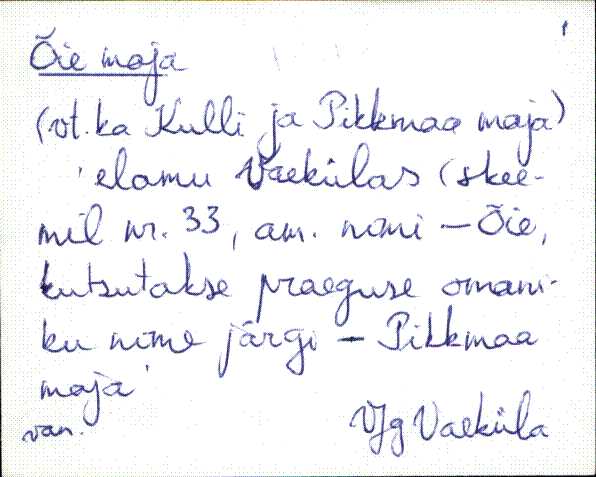 Õie maja
(vt. ka Kulli ja Pikkmaa maja)
'elamu Vaekülas (skee-
mil nr. 33, am. nimi – Õie,
kutsutakse praeguse omani-
ku nime järgi – Pikkmaa
maja'
van. VJg Vaeküla